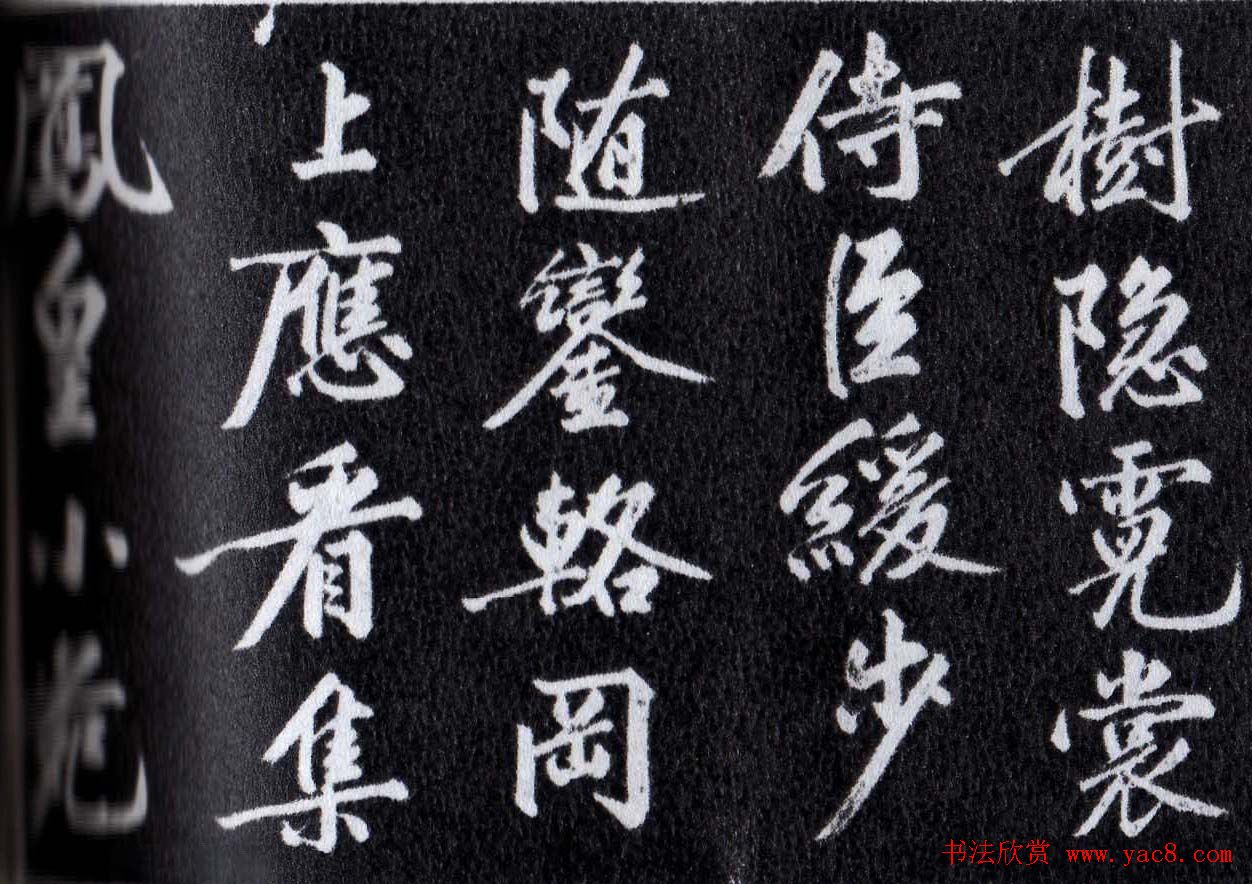 樹隐霓裳
侍臣緩步
随鑾輅岡
上應看集
鳳皇小
书法欣赏 www.yac8.com